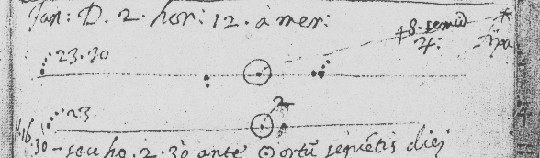 Jan: D. 2. hor: 12. à mer:
8. semid
♃.
23.30
23
♃
30 - seu ho. 2.30 ante ☉ ortũ sequẽtis diej